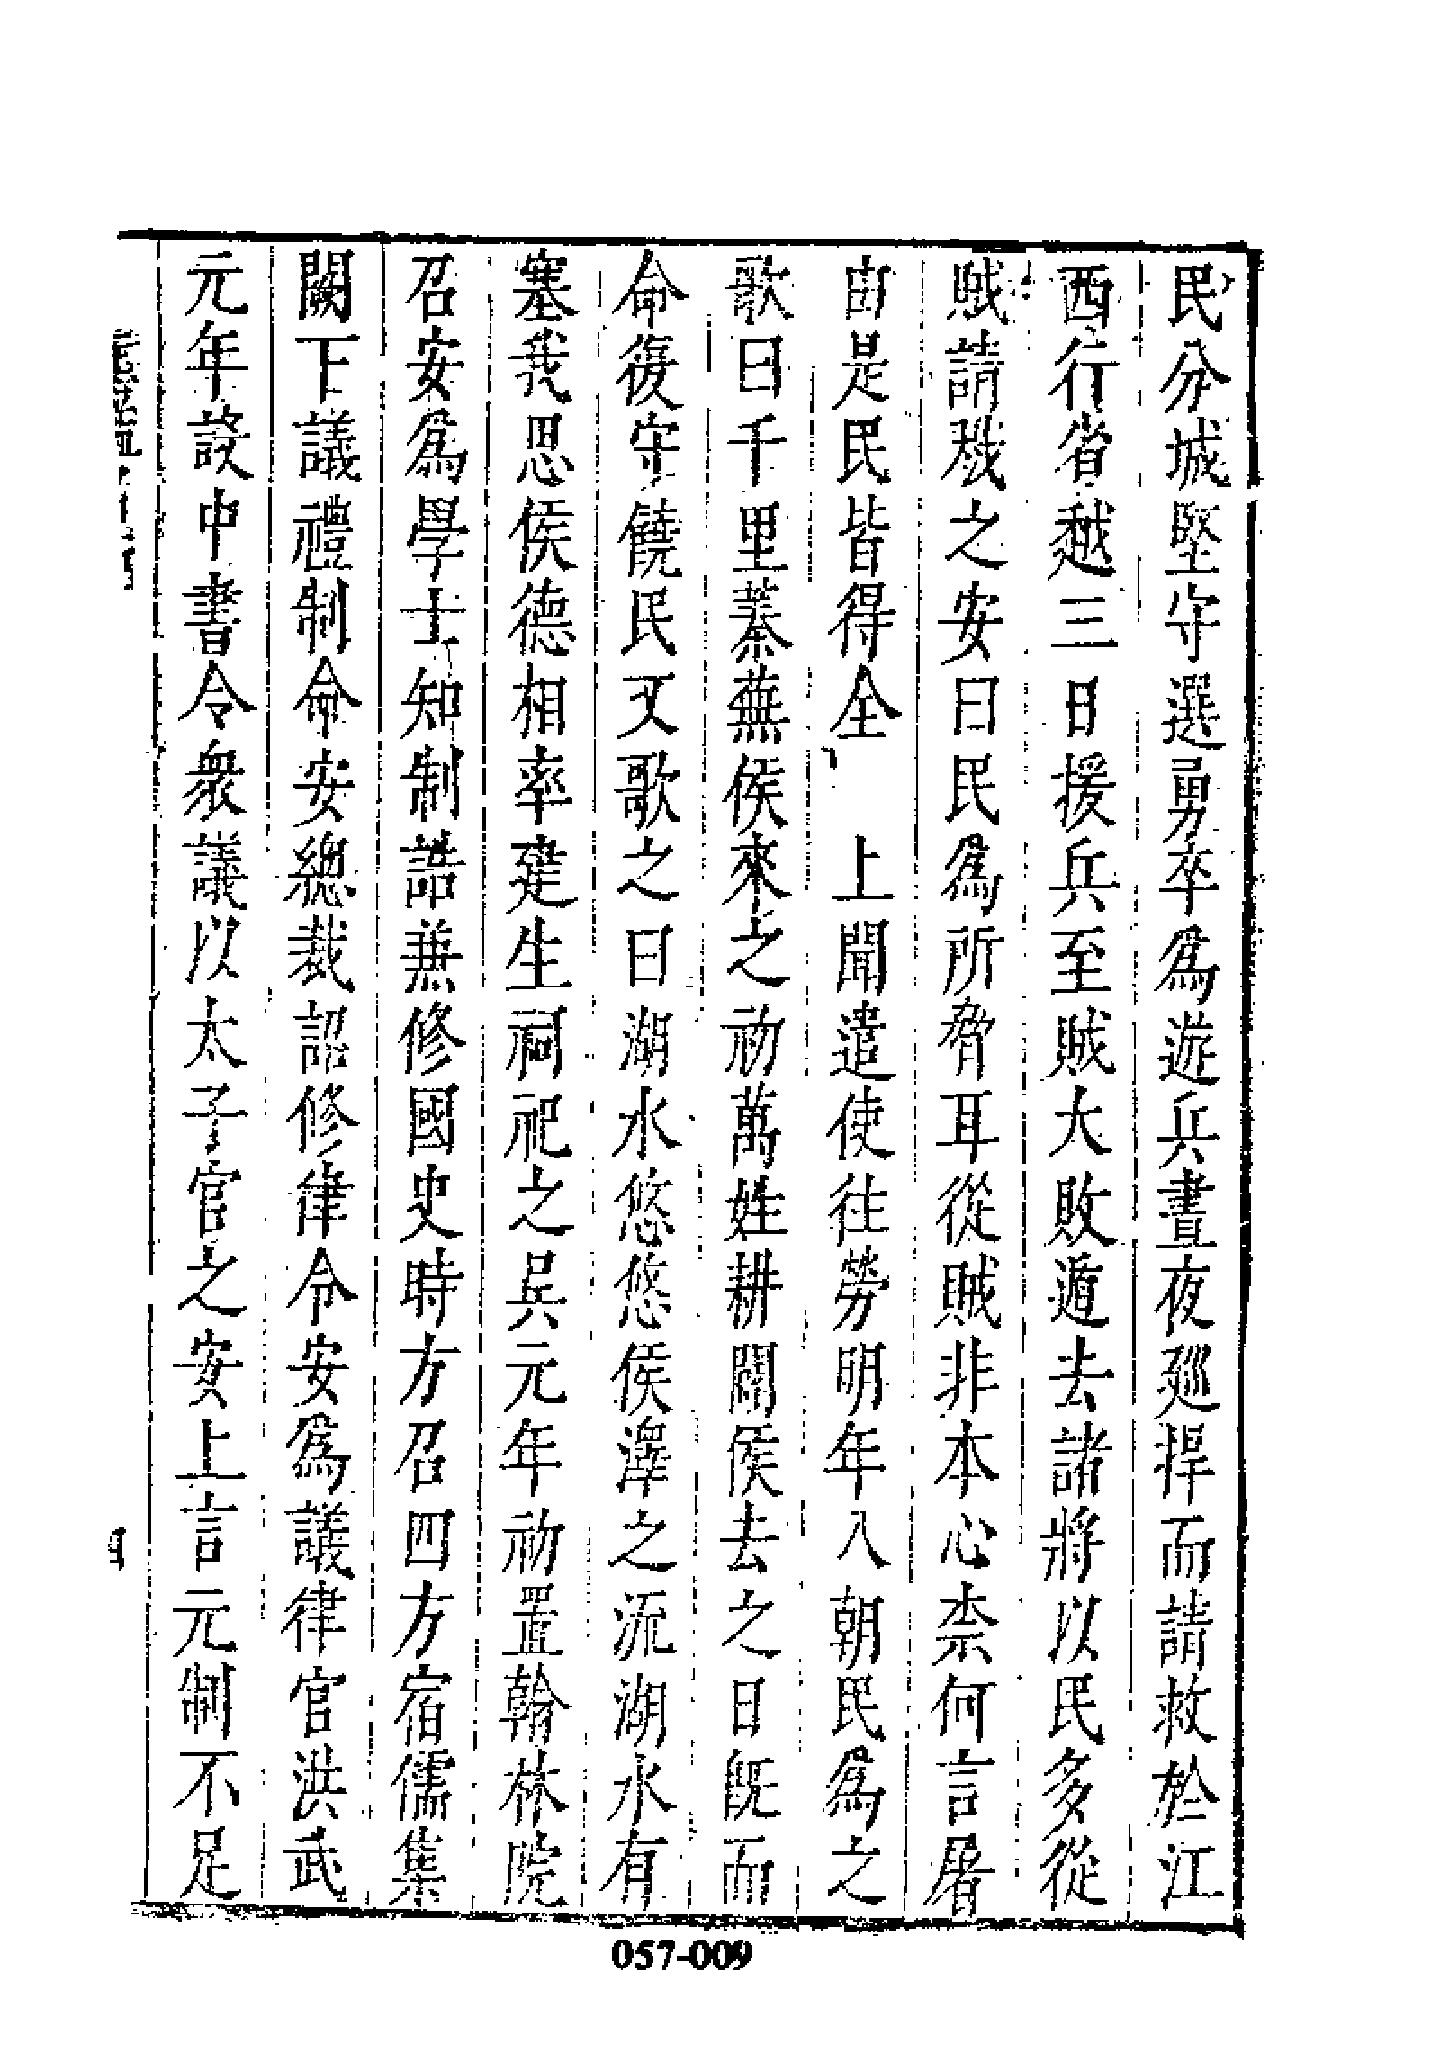 民分城堅守選勇卒爲遊兵晝夜廵捍而請救於江
西行省越三日援兵至賊大敗遁去諸將以民多從
賊請殱之安曰民爲所脅耳從賊非本心柰何言屠
由是民皆得全　上聞遣使往勞明年入朝民爲之
歌曰千里蓁蕪侯來之初萬姓耕闢侯去之日旣而
命復守饒民又歌之曰湖水悠悠侯澤之流湖水有
塞我思侯德相率建生祠祀之吳元年初置翰林院
召安爲學士知制誥兼修國史時方召四方宿儒集
闕下議禮制命安總裁詔修律令安爲議律官洪武
元年設中書令衆議以太子官之安上言元制不足
四
057-009